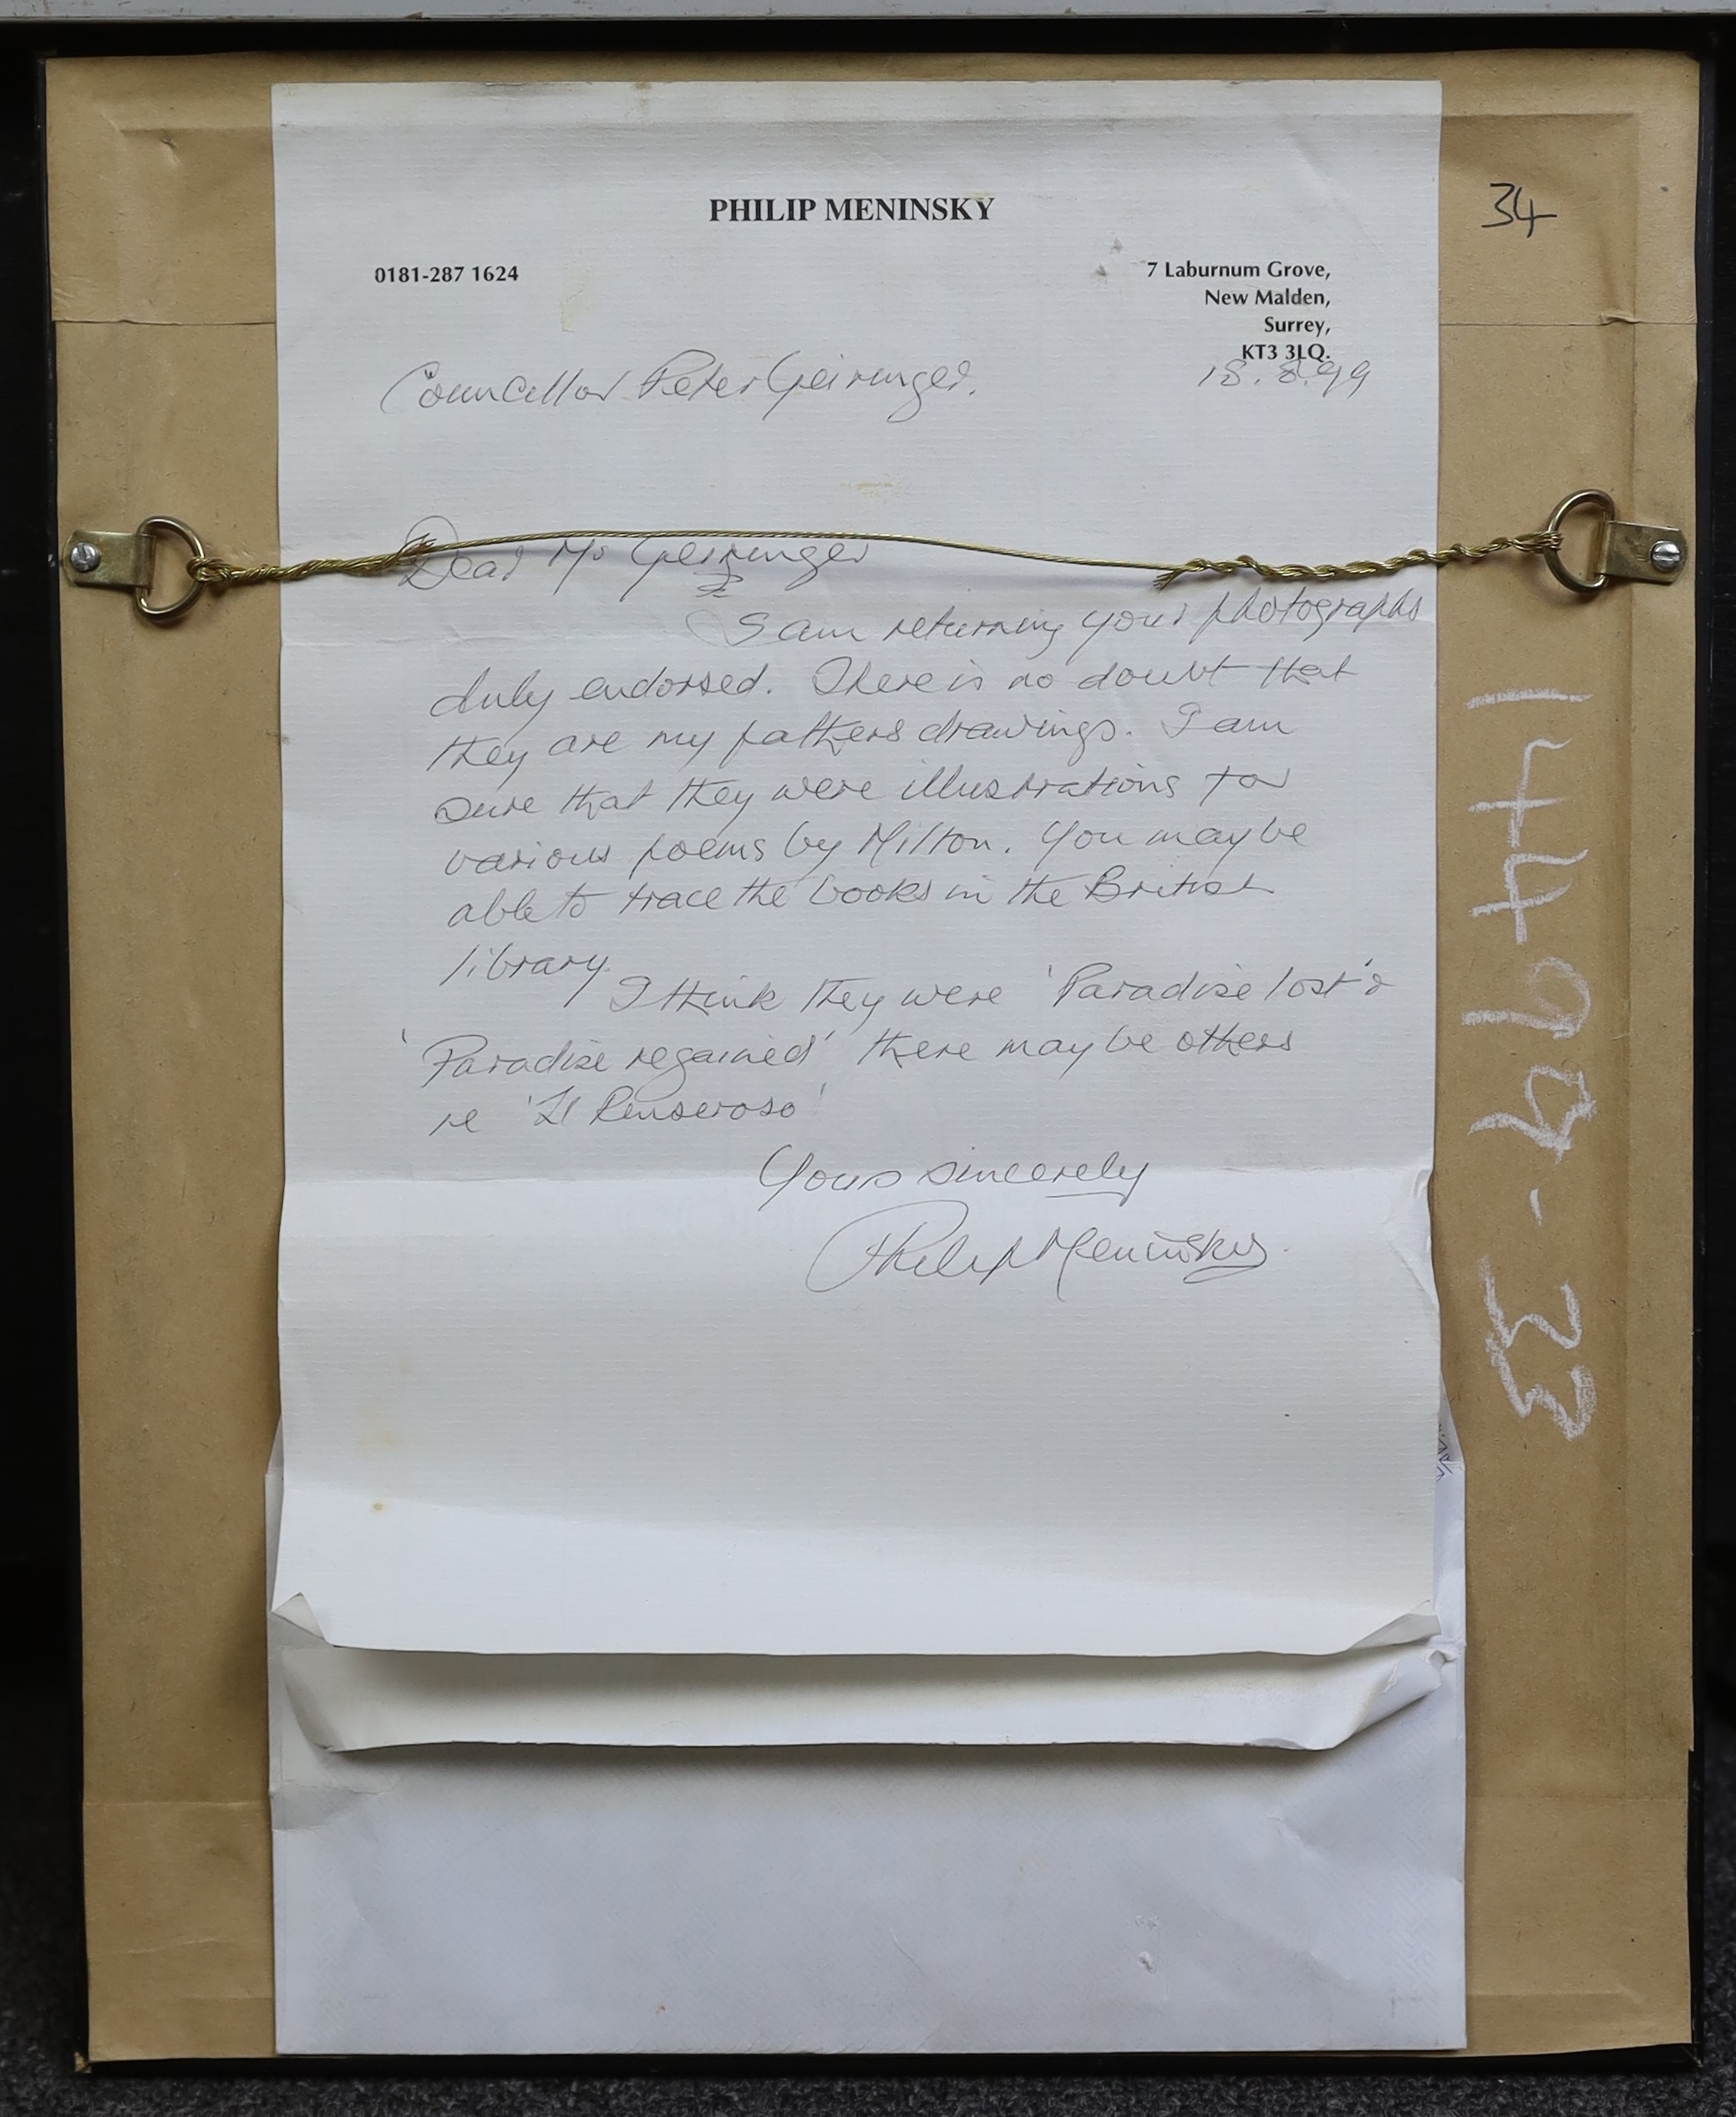 PHILIP MENINSKY
34
0181-287 1624
7 Laburnum Grove,
New Malden,
Surrey,
KT3 3LQ.
18.8.99
Councillor Peter Geiringer.
Dear Mr Geiringer
I am returning your photographs
duly endorsed. There is no doubt that
they are my fathers drawings. I am
sure that they were illustrations for
various poems by Milton. You may be
able to trace the books in the British
library.
I think they were 'Paradise lost' &
'Paradise regained' there may be others
re 'Il Penseroso'
Yours sincerely
Philip Meninsky.